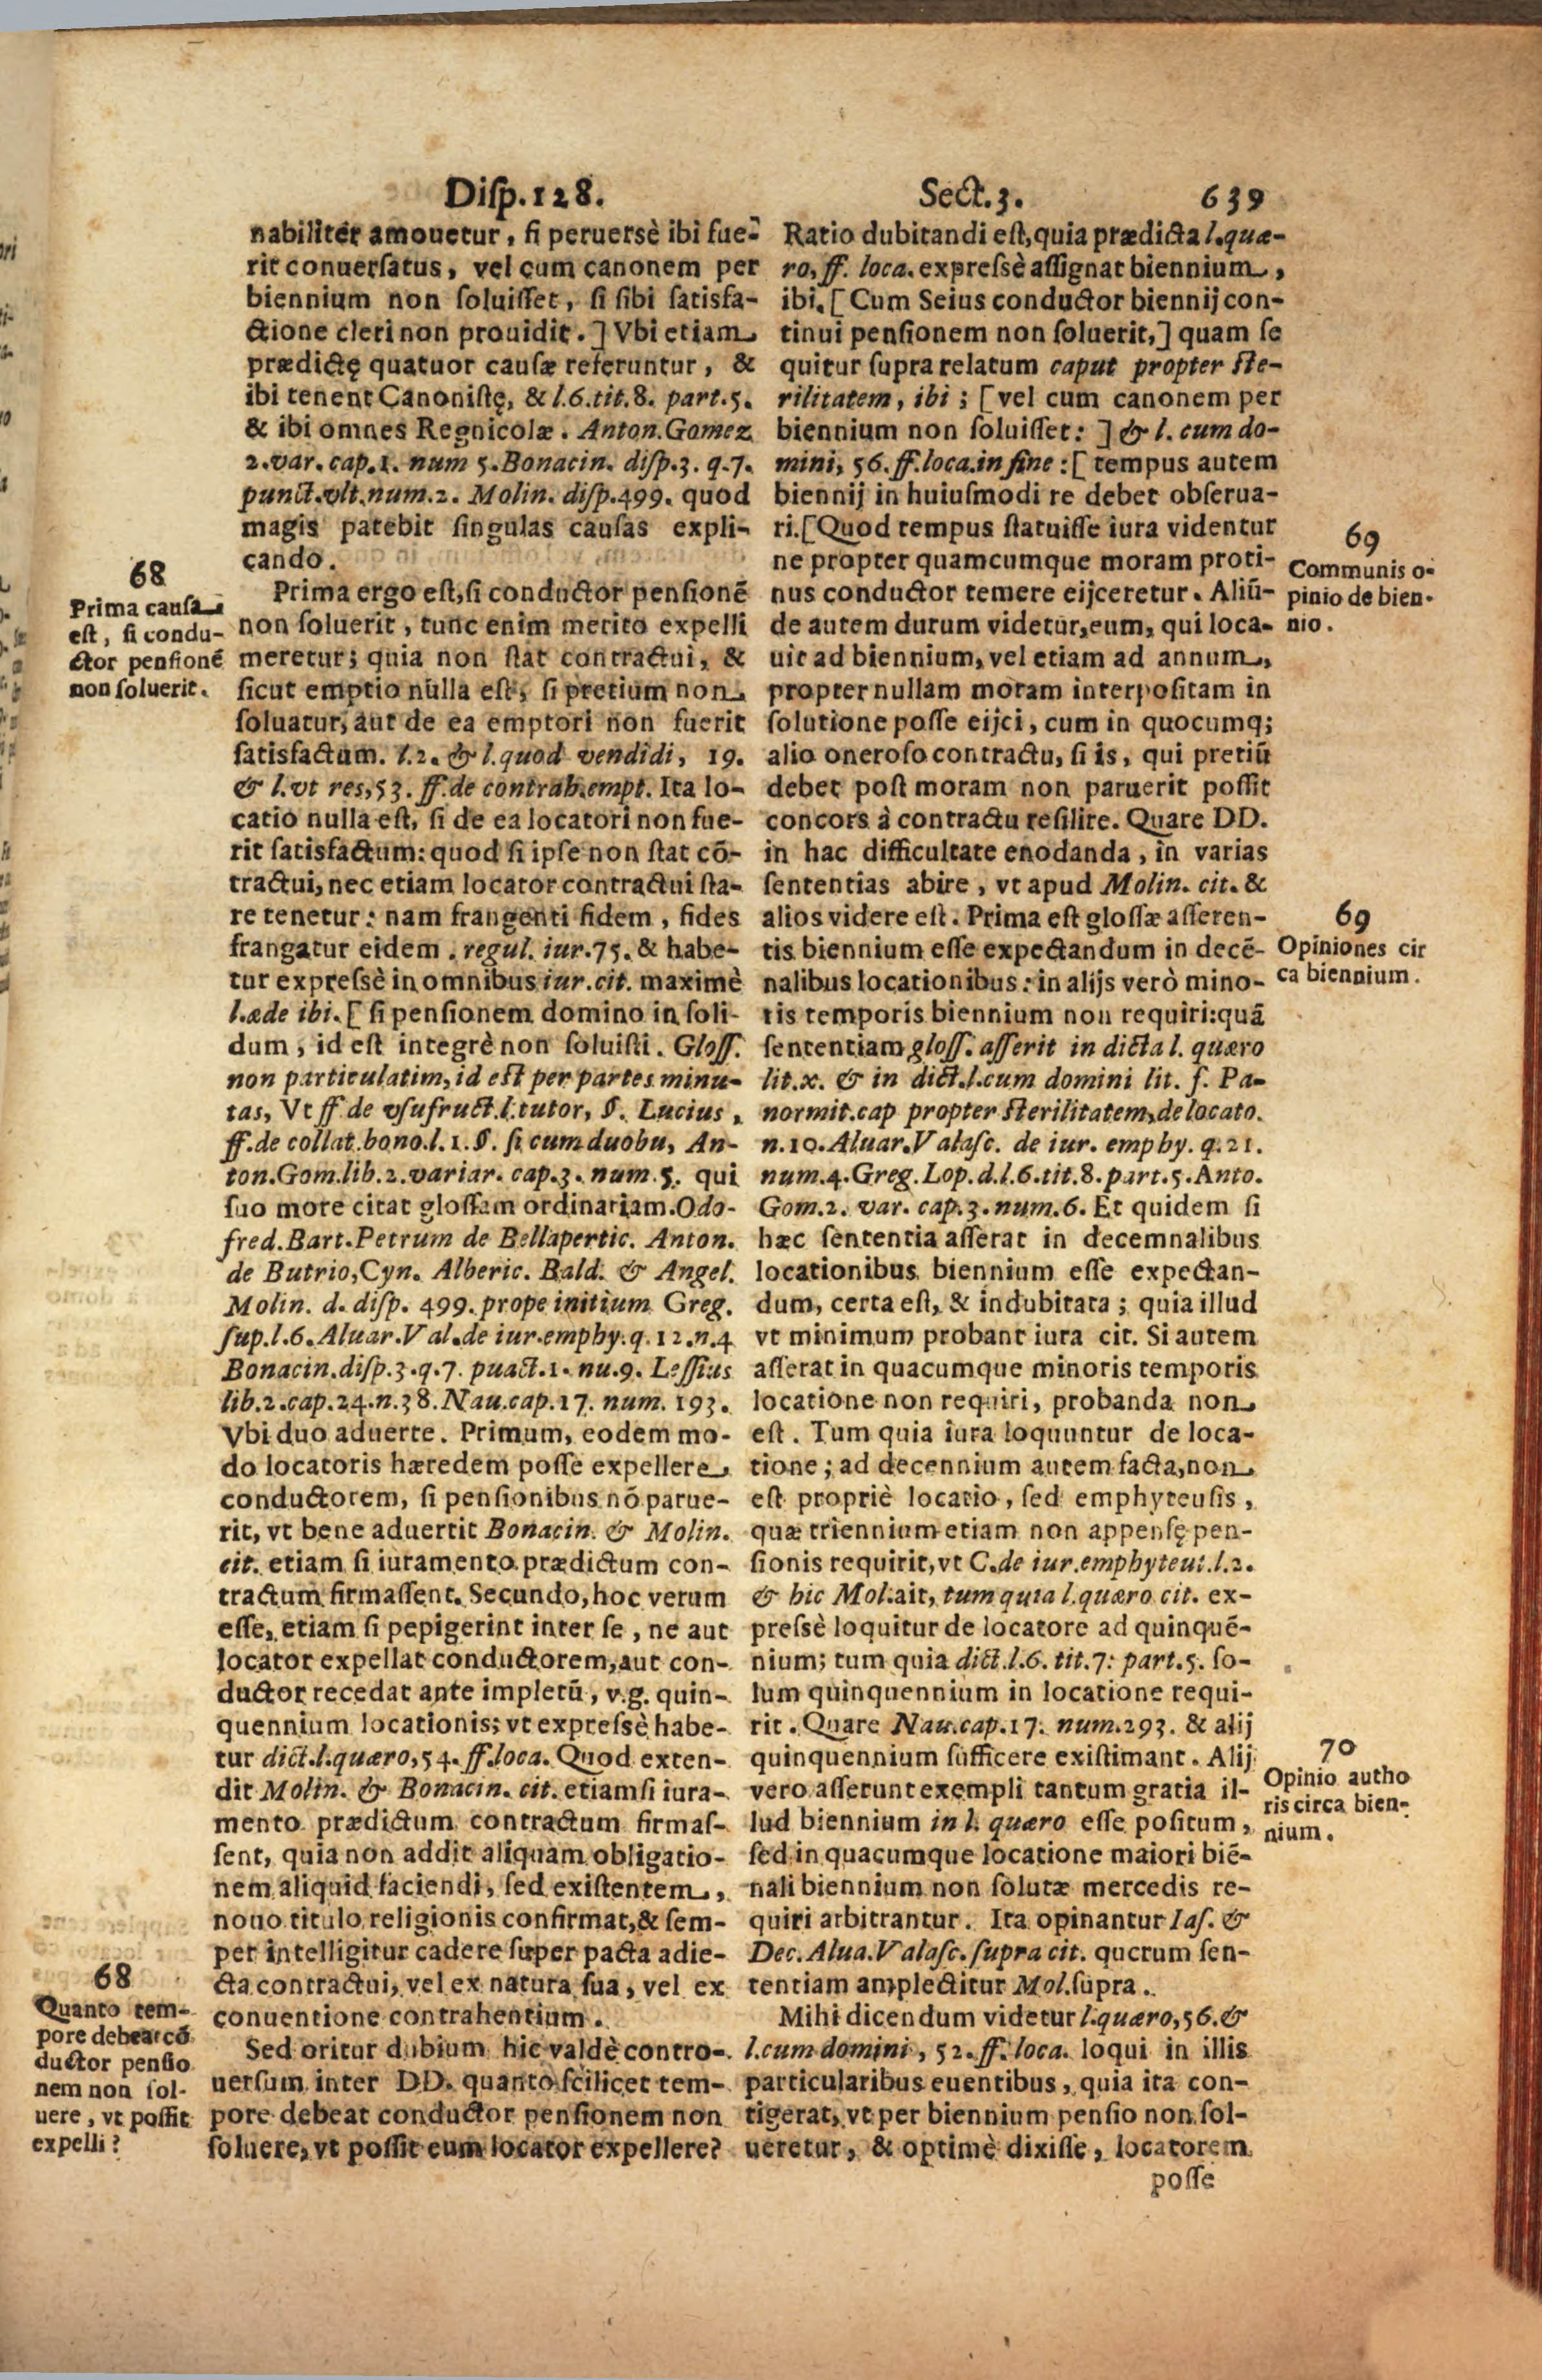 Disp.128. Sect.3. 639
nabiliter amouetur, si peruersè ibi fue-
rit conuersatus, vel cum canonem per
biennium non soluisset, si sibi satisfa-
ctione cleri non prouidit.] Vbi etiam
prædictę quatuor causæ referuntur, &
ibi tenent Canonistę, & l.6.tit.8. part.5.
& ibi omnes Regnicolæ. Anton.Gomez
2.var.cap.1. num 5.Bonacin. disp.3. q.7.
punct.vlt.num.2. Molin. disp.499. quod
magis patebit singulas causas expli-
cando.
68
Prima causa
est, si condu-
ctor pensionē
non soluerit.
Prima ergo est, si conductor pensionē
non soluerit, tunc enim merito expelli
meretur; quia non stat contractui, &
sicut emptio nulla est, si pretium non
soluatur, aut de ea emptori non fuerit
satisfactum. l.2. & l.quod vendidi, 19.
& l.vt res,53. ff.de contrah.empt. Ita lo-
catio nulla est, si de ea locatori non fue-
rit satisfactum: quod si ipse non stat cō-
tractui, nec etiam locator contractui sta-
re tenetur: nam frangenti fidem, fides
frangatur eidem. regul. iur.75. & habe-
tur expressè in omnibus iur.cit. maximè
l.æde ibi. [ si pensionem domino in soli-
dum, id est integrè non soluisti. Gloss.
non particulatim, id est per partes minu-
tas, Vt ff de vsufruct.l.tutor, §. Lucius,
ff.de collat.bono.l.1.§. si cum duobu, An-
ton.Gom.lib.2.variar. cap.3. num.5. qui
suo more citat glossam ordinariam.Odo-
fred.Bart.Petrum de Bellapertic. Anton.
de Butrio,Cyn. Alberic. Bald. & Angel.
Molin. d. disp. 499.prope initium Greg.
sup.l.6.Aluar.Val.de iur.emphy.q.12.n.4
Bonacin.disp.3.q.7. puact.1. nu.9. Lessius
lib.2.cap.24.n.38.Nau.cap.17. num. 193.
Vbi duo aduerte. Primum, eodem mo-
do locatoris hæredem posse expellere
conductorem, si pensionibus nō parue-
rit, vt bene aduertit Bonacin. & Molin.
cit. etiam si iuramento prædictum con-
tractum firmassent. Secundo, hoc verum
esse, etiam si pepigerint inter se, ne aut
locator expellat conductorem, aut con-
ductor recedat ante impletū, v.g. quin-
quennium locationis; vt expressè habe-
tur dict.l.quæro,54.ff.loca. Quod exten-
dit Molin. & Bonacin. cit. etiamsi iura-
mento prædictum contractum firmas-
sent, quia non addit aliquam obligatio-
nem aliquid faciendi, sed existentem,
nouo titulo religionis confirmat, & sem-
per intelligitur cadere super pacta adie-
cta contractui, vel ex natura sua, vel ex
conuentione contrahentium.
68
Quanto tem-
pore debeat cō
ductor pensio
nem non sol-
uere, vt possit
expelli?
Sed oritur dubium hic valdè contro-
uersum inter DD. quanto scilicet tem-
pore debeat conductor pensionem non
soluere, vt possit eum locator expellere?
Ratio dubitandi est, quia prædicta l.quæ-
ro, ff. loca. expressè assignat biennium,
ibi. [ Cum Seius conductor biennij con-
tinui pensionem non soluerit,] quam se
quitur supra relatum caput propter ste-
rilitatem, ibi ; [ vel cum canonem per
biennium non soluisset: ] & l. cum do-
mini, 56.ff.loca.in fine : [ tempus autem
biennij in huiusmodi re debet obserua-
ri.[Quod tempus statuisse iura videntur
ne propter quamcumque moram proti-
nus conductor temere eijceretur. Aliū-
de autem durum videtur, eum, qui loca-
uit ad biennium, vel etiam ad annum,
propter nullam moram interpositam in
solutione posse eijci, cum in quocumq;
alio oneroso contractu, si is, qui pretiū
debet post moram non paruerit possit
concors à contractu resilire. Quare DD.
in hac difficultate enodanda, in varias
sententias abire, vt apud Molin. cit. &
alios videre est. Prima est glossæ asseren-
tis biennium esse expectandum in decē-
nalibus locationibus: in alijs verò mino-
ris temporis biennium non requiri: quā
sententiam gloss. asserit in dicta l. quæro
lit.x. & in dict.l.cum domini lit. f. Pa-
normit.cap propter sterilitatem,de locato.
n.10.Aluar.Valasc. de iur. emphy. q.21.
num.4.Greg.Lop.d.l.6.tit.8.part.5.Anto.
Gom.2. var. cap.3.num.6. Et quidem si
hæc sententia asserat in decemnalibus
locationibus biennium esse expectan-
dum, certa est, & indubitata ; quia illud
vt minimum probant iura cit. Si autem
asserat in quacumque minoris temporis
locatione non requiri, probanda non
est. Tum quia iura loquuntur de loca-
tione; ad decennium autem facta, non
est propriè locatio, sed emphyteusis,
quæ triennium etiam non appensę pen-
sionis requirit, vt C.de iur.emphyteut.l.2.
& hic Mol.ait, tum quia l.quæro cit. ex-
pressè loquitur de locatore ad quinquē-
nium; tum quia dict.l.6. tit.7: part.5. so-
lum quinquennium in locatione requi-
rit. Quare Nau.cap.17. num.293. & alij
quinquennium sufficere existimant. Alij
vero asserunt exempli tantum gratia il-
lud biennium in l. quæro esse positum,
sed in quacumque locatione maiori biē-
nali biennium non solutæ mercedis re-
quiri arbitrantur. Ita opinantur Ias. &
Dec. Alua.Valasc. supra cit. querum sen-
tentiam amplectitur Mol.supra.
Mihi dicendum videtur l.quæro,56.&
l.cum domini, 52.ff. loca. loqui in illis
particularibus euentibus, quia ita con-
tigerat, vt per biennium pensio non sol-
ueretur, & optimè dixisse, locatorem
posse
69
Communis o-
pinio de bien-
nio.
69
Opiniones cir
ca biennium.
70
Opinio autho
ris circa bien-
nium.